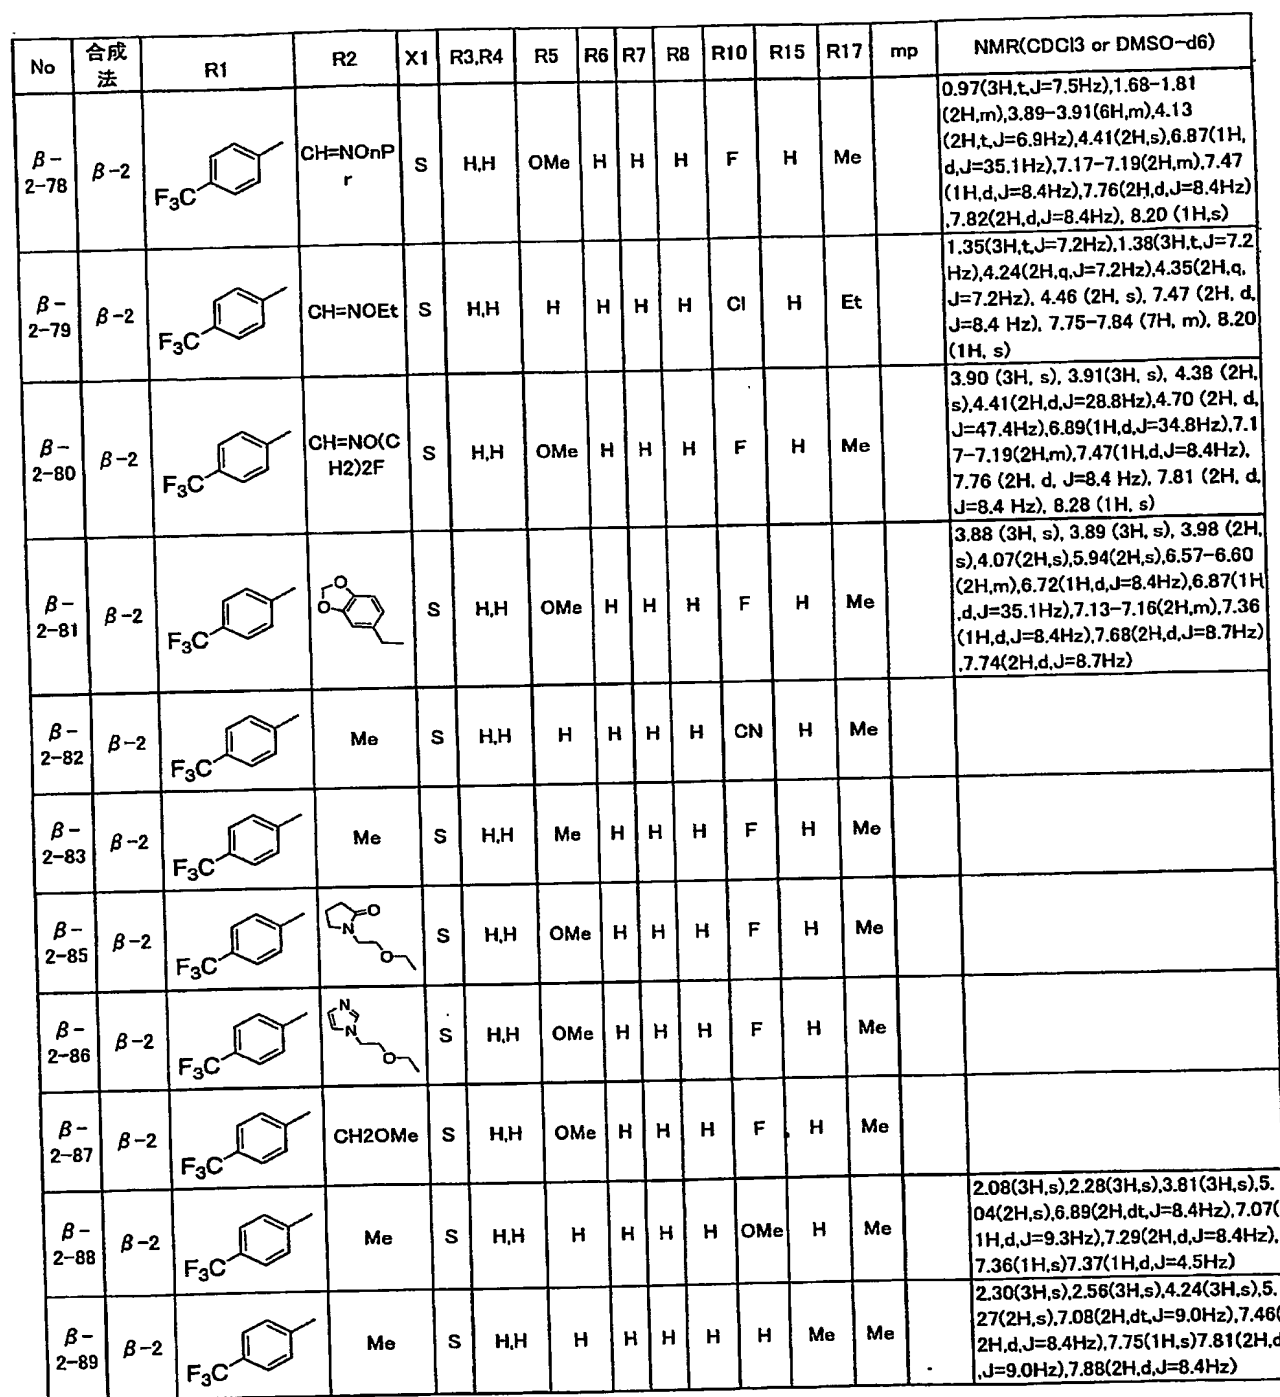 No 合成法 R1 R2 X1 R3,R4 R5 R6 R7 R8 R10 R15 R17 mp NMR(CDCl3 or DMSO-d6)
β-2-78 β-2 F3C CH=NOnPr S H,H OMe H H H F H Me
0.97(3H,t,J=7.5Hz),1.68-1.81
(2H,m),3.89-3.91(6H,m),4.13
(2H,t,J=6.9Hz),4.41(2H,s),6.87(1H,
d,J=35.1Hz),7.17-7.19(2H,m),7.47
(1H,d,J=8.4Hz),7.76(2H,d,J=8.4Hz)
,7.82(2H,d,J=8.4Hz), 8.20 (1H,s)
β-2-79 β-2 F3C CH=NOEt S H,H H H H H Cl H Et
1.35(3H,t,J=7.2Hz),1.38(3H,t,J=7.2
Hz),4.24(2H,q,J=7.2Hz),4.35(2H,q,
J=7.2Hz), 4.46 (2H, s), 7.47 (2H, d,
J=8.4 Hz), 7.75-7.84 (7H, m), 8.20
(1H, s)
β-2-80 β-2 F3C CH=NO(CH2)2F S H,H OMe H H H F H Me
3.90 (3H, s), 3.91(3H, s), 4.38 (2H,
s),4.41(2H,d,J=28.8Hz),4.70 (2H, d,
J=47.4Hz),6.89(1H,d,J=34.8Hz),7.1
7-7.19(2H,m),7.47(1H,d,J=8.4Hz),
7.76 (2H, d, J=8.4 Hz), 7.81 (2H, d,
J=8.4 Hz), 8.28 (1H, s)
β-2-81 β-2 F3C O O S H,H OMe H H H F H Me
3.88 (3H, s), 3.89 (3H, s), 3.98 (2H,
s),4.07(2H,s),5.94(2H,s),6.57-6.60
(2H,m),6.72(1H,d,J=8.4Hz),6.87(1H
,d,J=35.1Hz),7.13-7.16(2H,m),7.36
(1H,d,J=8.4Hz),7.68(2H,d,J=8.7Hz)
,7.74(2H,d,J=8.7Hz)
β-2-82 β-2 F3C Me S H,H H H H H CN H Me
β-2-83 β-2 F3C Me S H,H Me H H H F H Me
β-2-85 β-2 F3C O N O S H,H OMe H H H F H Me
β-2-86 β-2 F3C N N O S H,H OMe H H H F H Me
β-2-87 β-2 F3C CH2OMe S H,H OMe H H H F H Me
β-2-88 β-2 F3C Me S H,H H H H H OMe H Me
2.08(3H,s),2.28(3H,s),3.81(3H,s),5.
04(2H,s),6.89(2H,dt,J=8.4Hz),7.07(
1H,d,J=9.3Hz),7.29(2H,d,J=8.4Hz),
7.36(1H,s)7.37(1H,d,J=4.5Hz)
β-2-89 β-2 F3C Me S H,H H H H H H Me Me
2.30(3H,s),2.56(3H,s),4.24(3H,s),5.
27(2H,s),7.08(2H,dt,J=9.0Hz),7.46(
2H,d,J=8.4Hz),7.75(1H,s)7.81(2H,d
,J=9.0Hz),7.88(2H,d,J=8.4Hz)